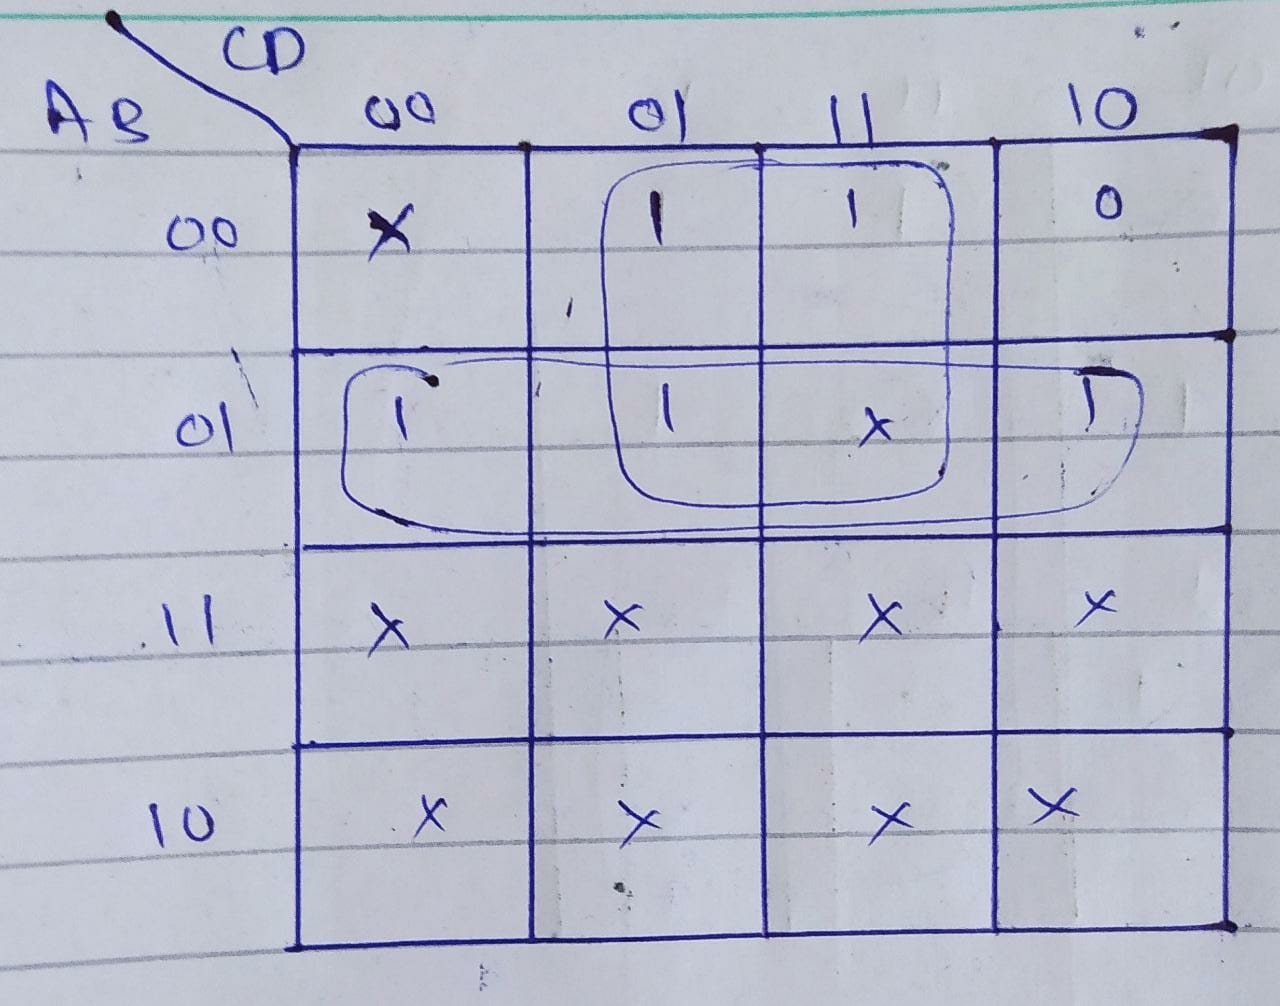 CD
AB 00 01 11 10
00 X 1 1 0
01 1 1 X 1
11 X X X X
10 X X X X